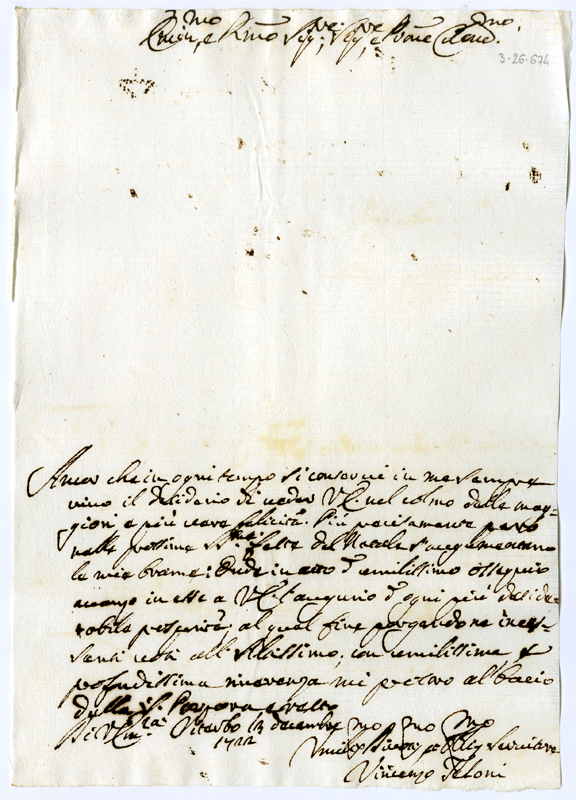 Emin.mo, e R.mo Sig.re, Sig.re, e P̃rone Colend.mo
3-26-674
Ancor che in ogni tempo si conservi in me sempre
vivo il desiderio di veder V.E. nel colmo delle mag-
giori e più vere felicità. Più precisamente però
nelle prossime S.me Feste del Natale s'augumentano
le mie brame; Onde in atto d'umilissimo ossequio
avanzo in esse a V.E. l'augurio d'ogni più deside-
rabile prosperità, al qual fine porgendone inces-
santi voti all'Altissimo, con umilissima e
profondissima riverenza mi porto al bacio
della S. Porpora
Di V. Em.za Viterbo 13 decembre
1722
Umiliss.mo Servitore
Vincenzo Feloni